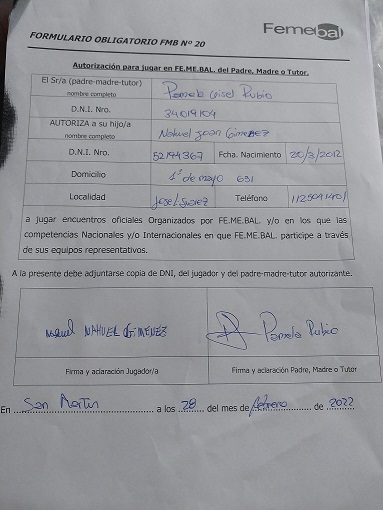 Femebal
FORMULARIO OBLIGATORIO FMB Nº 20
Autorización para jugar en FE.ME.BAL. del Padre, Madre o Tutor.
El Sr/a (padre-madre-tutor) nombre completo Pamela Gisel Rubio
D.N.I. Nro. 34019104
AUTORIZA a su hijo/a nombre completo Nahuel Joan Gimenez
D.N.I. Nro. 52194367 Fcha. Nacimiento 20/3/2012
Domicilio 1º de mayo 631
Localidad Jose L Suarez Teléfono
a jugar encuentros oficiales Organizados por FE.ME.BAL. y/o en los que las
competencias Nacionales y/o Internacionales en que FE.ME.BAL. participe a través
de sus equipos representativos.
A la presente debe adjuntarse copia de DNI, del jugador y del padre-madre-tutor autorizante.
NAHUEL GIMENEZ Pamela Rubio
Firma y aclaración Jugador/a Firma y aclaración Padre, Madre o Tutor
En San Martin a los 28 del mes de febrero de 2022